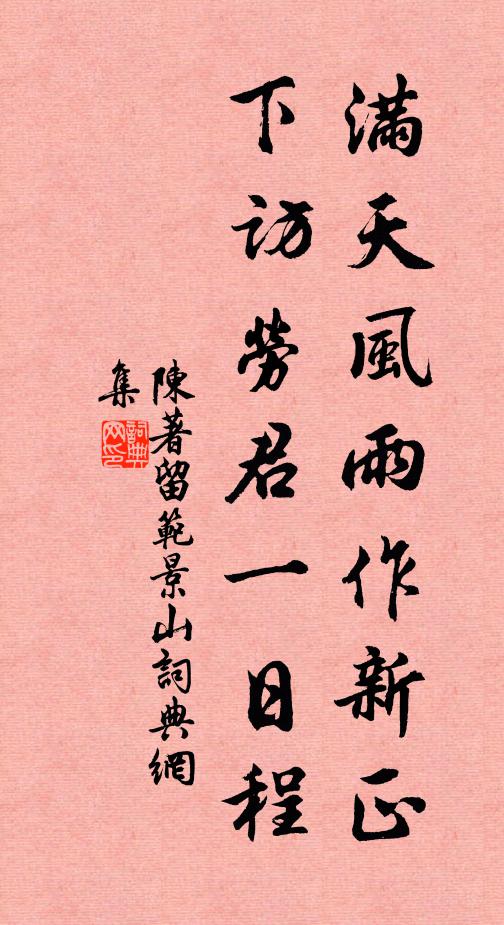 滿天風雨作新正
下訪勞君一日程
陳著留範景山詞典網
集
詞典
网印